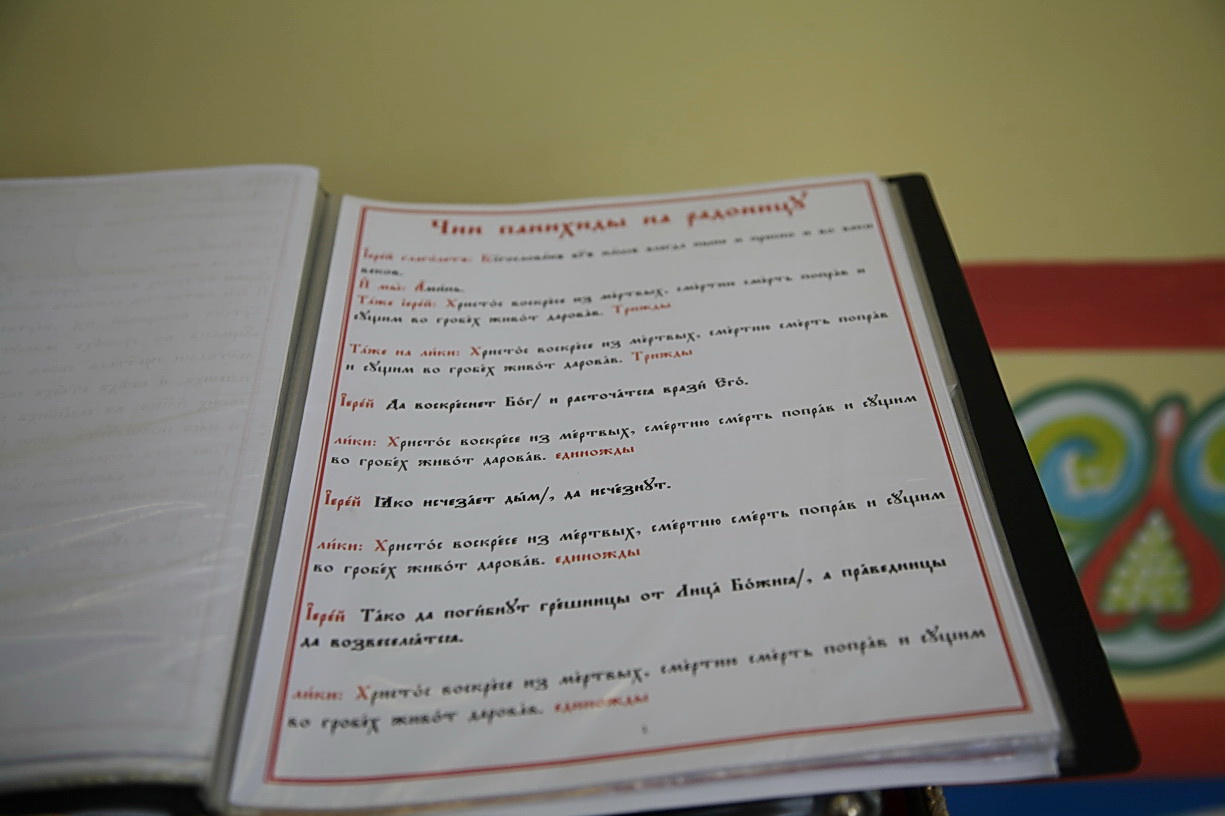 Чин панихиды на радоницꙋ
І҆ере́й глаго́летъ: Благослове́нъ бг҃ъ на́шъ всегда ны́не и при́сно и во веки
веков.
И҆ мы̀: А҆ми́нь.
Та́же і҆ере́й: Христо́с воскре́се из ме́ртвых, сме́ртию сме́рть попра́в и
сꙋ́щим во гробе́х живо́т дарова́в. Трижды
Та́же на ли́ки: Христо́с воскре́се из ме́ртвых, сме́ртию сме́рть попра́в
и сꙋ́щим во гробе́х живо́т дарова́в. Трижды
І҆ере́й Да воскре́снет Бо́г/ и расточа́тсѧ врази́ Єго́.
ли́ки: Христо́с воскре́се из ме́ртвых, сме́ртию сме́рть попра́в и сꙋ́щим
во гробе́х живо́т дарова́в. единожды
І҆ере́й Ꙗко исчеза́ет ды́м/, да исче́знꙋт.
ли́ки: Христо́с воскре́се из ме́ртвых, сме́ртию сме́рть попра́в и сꙋ́щим
во гробе́х живо́т дарова́в. единожды
І҆ере́й Та́ко да поги́бнꙋт гре́шницы от Лица́ Бо́жиѧ/, а пра́ведницы
да возвеселѧ́тсѧ.
ли́ки: Христо́с воскре́се из ме́ртвых, сме́ртию сме́рть попра́в и сꙋ́щим
во гробе́х живо́т дарова́в. единожды